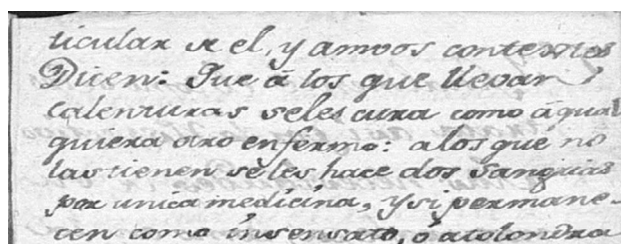 ticular de el, y amvos contextes
Dicen: Que á los que llevan
calenturas seles cura como á qual
quiera otro enfermo: alos que no
las tienen seles hace dos sangrias
por unica medicina, y si permane-
cen como insensato, ó atolondra